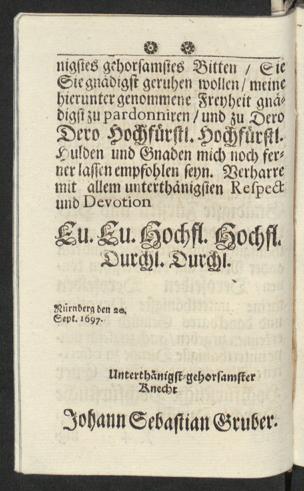 nigstes gehorsamstes Bitten / Sie
Sie gnädigst geruhen wollen / meine
hierunter genommene Freyheit gnä-
digst zu pardonniren / und zu Dero
Dero Hochfürstl. Hochfürstl.
Hulden und Gnaden mich noch fer-
ner lassen empfohlen seyn. Verharre
mit allem unterthänigsten Respect
und Devotion
Eu. Eu. Hochfl. Hochfl.
Durchl. Durchl.
Nürnberg den 20.
Sept. 1697.
Unterthänigst-gehorsamster
Knecht
Johann Sebastian Gruber.